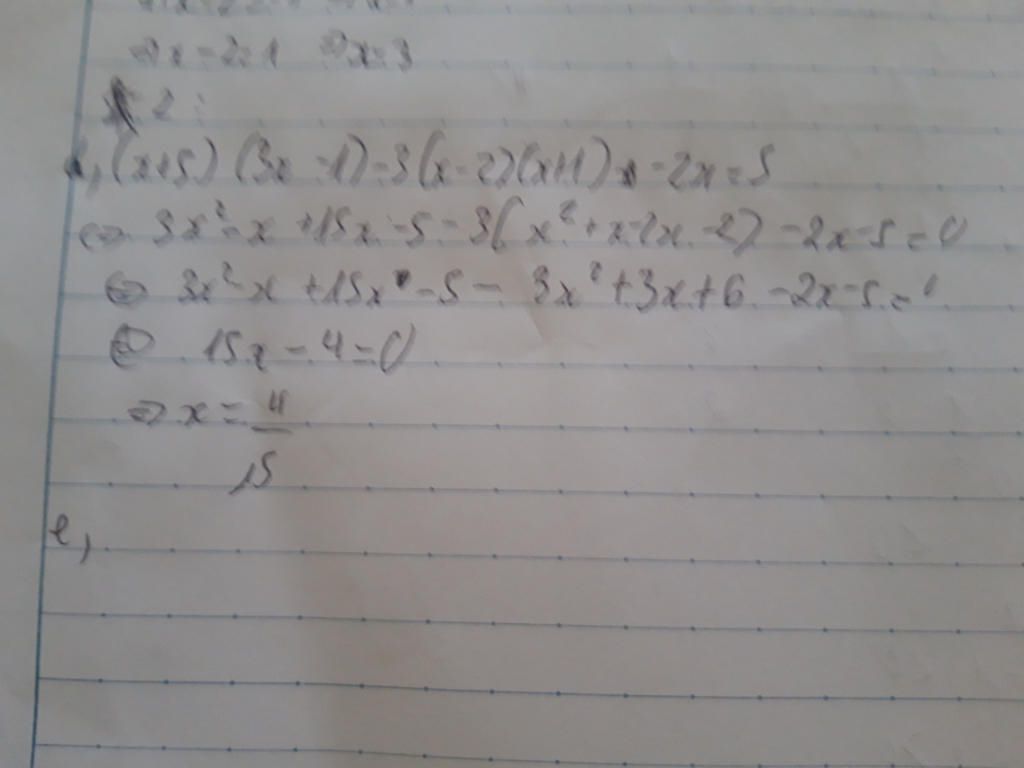 ⇒ x - 2 = 1 ⇒ x = 3
2 :
(x+5) (3x - 1) - 3(x - 2)(x+1) - 2x = 5
⇔ 3x² - x + 15x - 5 - 3(x² + x - 2x - 2) - 2x - 5 = 0
⇔ 3x² - x + 15x - 5 - 3x² + 3x + 6 - 2x - 5 =
⇔ 15x - 4 = 0
⇒ x = 4/15
e,